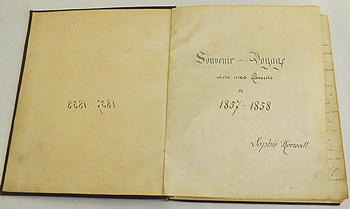 Souvenir de Voyage
avec mes Parents
en
1857-1858
Sophie
1857-1858